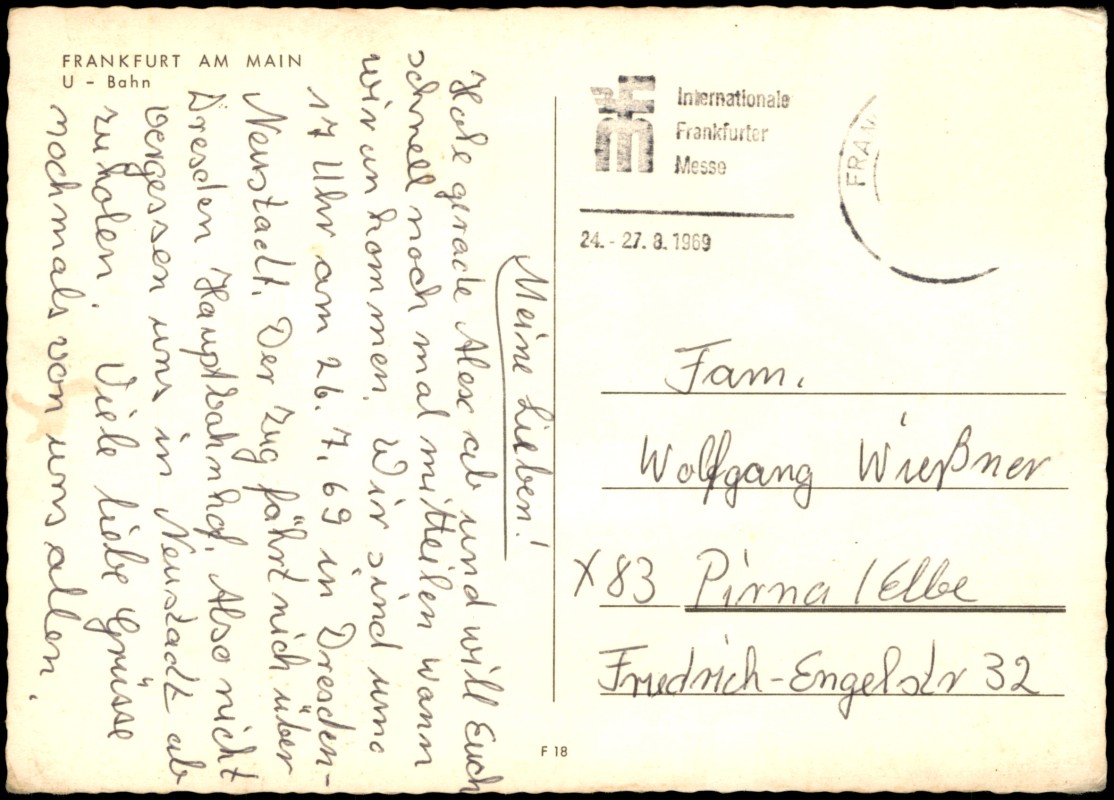 FRANKFURT AM MAIN
U - Bahn
Meine Lieben!
Hole gerade Alex ab und will Euch
schnell noch mal mitteilen wann
wir ankommen. Wir sind um
17 Uhr am 26. 7. 69 in Dresden-
Neustadt. Der Zug fährt nich über
Dresden Hauptbahnhof. Also nicht
vergessen uns in Neustadt ab
zuholen. Viele liebe Grüsse
nochmals von uns allen.
Internationale
Frankfurter
Messe
24. - 27. 8. 1969
FRAN
Fam.
Wolfgang Wießner
X 83 Pirna / Elbe
Friedrich-Engelstr 32
F 18